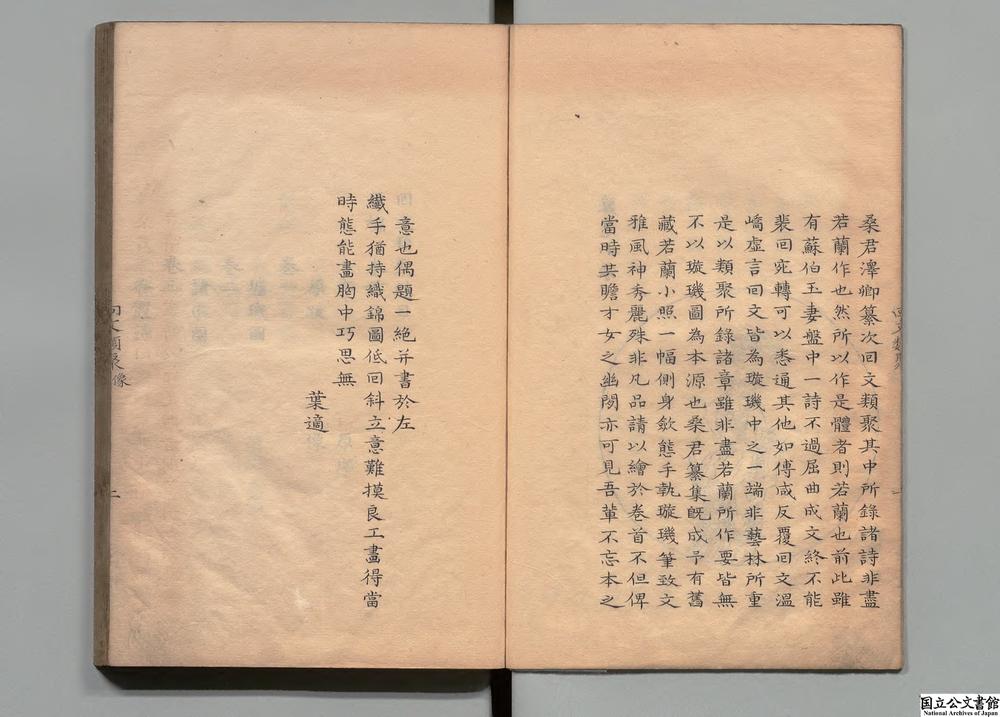 桑君澤卿纂次回文類聚其中所錄諸詩非盡
若蘭作也然所以作是體者則若蘭也前此雖
有蘇伯玉妻盤中一詩不過屈曲成文終不能
裴回宛轉可以悉通其他如傅咸反覆回文溫
嶠虛言回文皆為璇璣中之一端非藝林所重
是以類聚所錄諸章雖非盡若蘭所作要皆無
不以璇璣圖為本源也桑君纂集既成予有舊
藏若蘭小照一幅側身斂態手執璇璣筆致文
雅風神秀麗殊非凡品請以繪於卷首不但俾
當時共瞻才女之幽閑亦可見吾輩不忘本之
意也偶題一絕并書於左
纖手猶持織錦圖低回斜立意難摸良工畫得當
時態能畫胸中巧思無
葉適
回文類聚 像
二
国立公文書館
National Archives of Japan